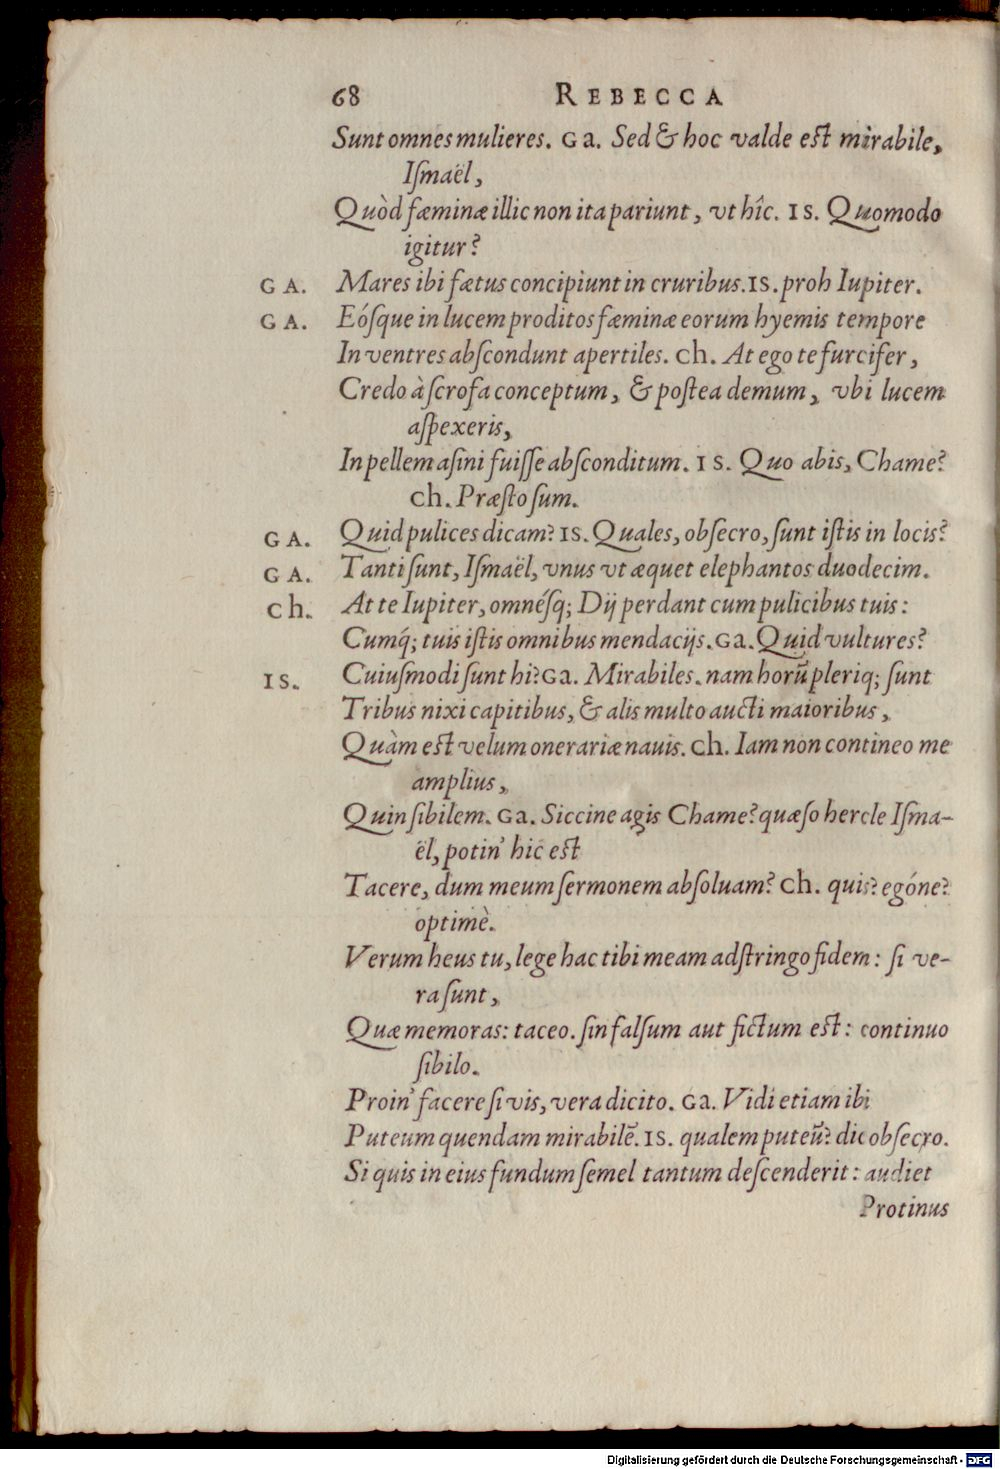 68 REBECCA
Sunt omnes mulieres. Ga. Sed & hoc valde est mirabile,
Iſmaël,
Quòd fæminæ illic non ita pariunt, vt hîc. IS. Quomodo
igitur?
GA. Mares ibi fætus concipiunt in cruribus. IS. proh Iupiter.
GA. Eóſque in lucem proditos fæminæ eorum hyemis tempore
In ventres abſcondunt apertiles. Ch. At ego te furcifer,
Credo à ſcrofa conceptum, & poſtea demum, vbi lucem
aſpexeris,
In pellem aſini fuiſſe abſconditum. IS. Quo abis, Chame?
Ch. Præſto ſum.
GA. Quid pulices dicam? IS. Quales, obſecro, ſunt iſtis in locis?
GA. Tanti ſunt, Iſmaël, vnus vt æquet elephantos duodecim.
Ch. At te Iupiter, omnéſq; Dij perdant cum pulicibus tuis:
Cumq́; tuis iſtis omnibus mendacijs. Ga. Quid vultures?
IS. Cuiuſmodi ſunt hi? Ga. Mirabiles. nam horũ pleriq; ſunt
Tribus nixi capitibus, & alis multo aucti maioribus,
Quàm est velum onerariæ nauis. Ch. Iam non contineo me
amplius,
Quin ſibilem. Ga. Siccine agis Chame? quæſo hercle Iſma-
ël, potin' hic est
Tacere, dum meum ſermonem abſoluam? Ch. quis? egóne?
optimè.
Verum heus tu, lege hac tibi meam adſtringo fidem: ſi ve-
ra ſunt,
Quæ memoras: taceo. ſin falſum aut fictum est: continuo
ſibilo.
Proin' facere ſi vis, vera dicito. Ga. Vidi etiam ibi
Puteum quendam mirabilẽ. IS. qualem puteũ? dic obſecro.
Si quis in eius fundum ſemel tantum deſcenderit: audiet
Protinus
Digitalisierung gefördert durch die Deutsche Forschungsgemeinschaft - DFG